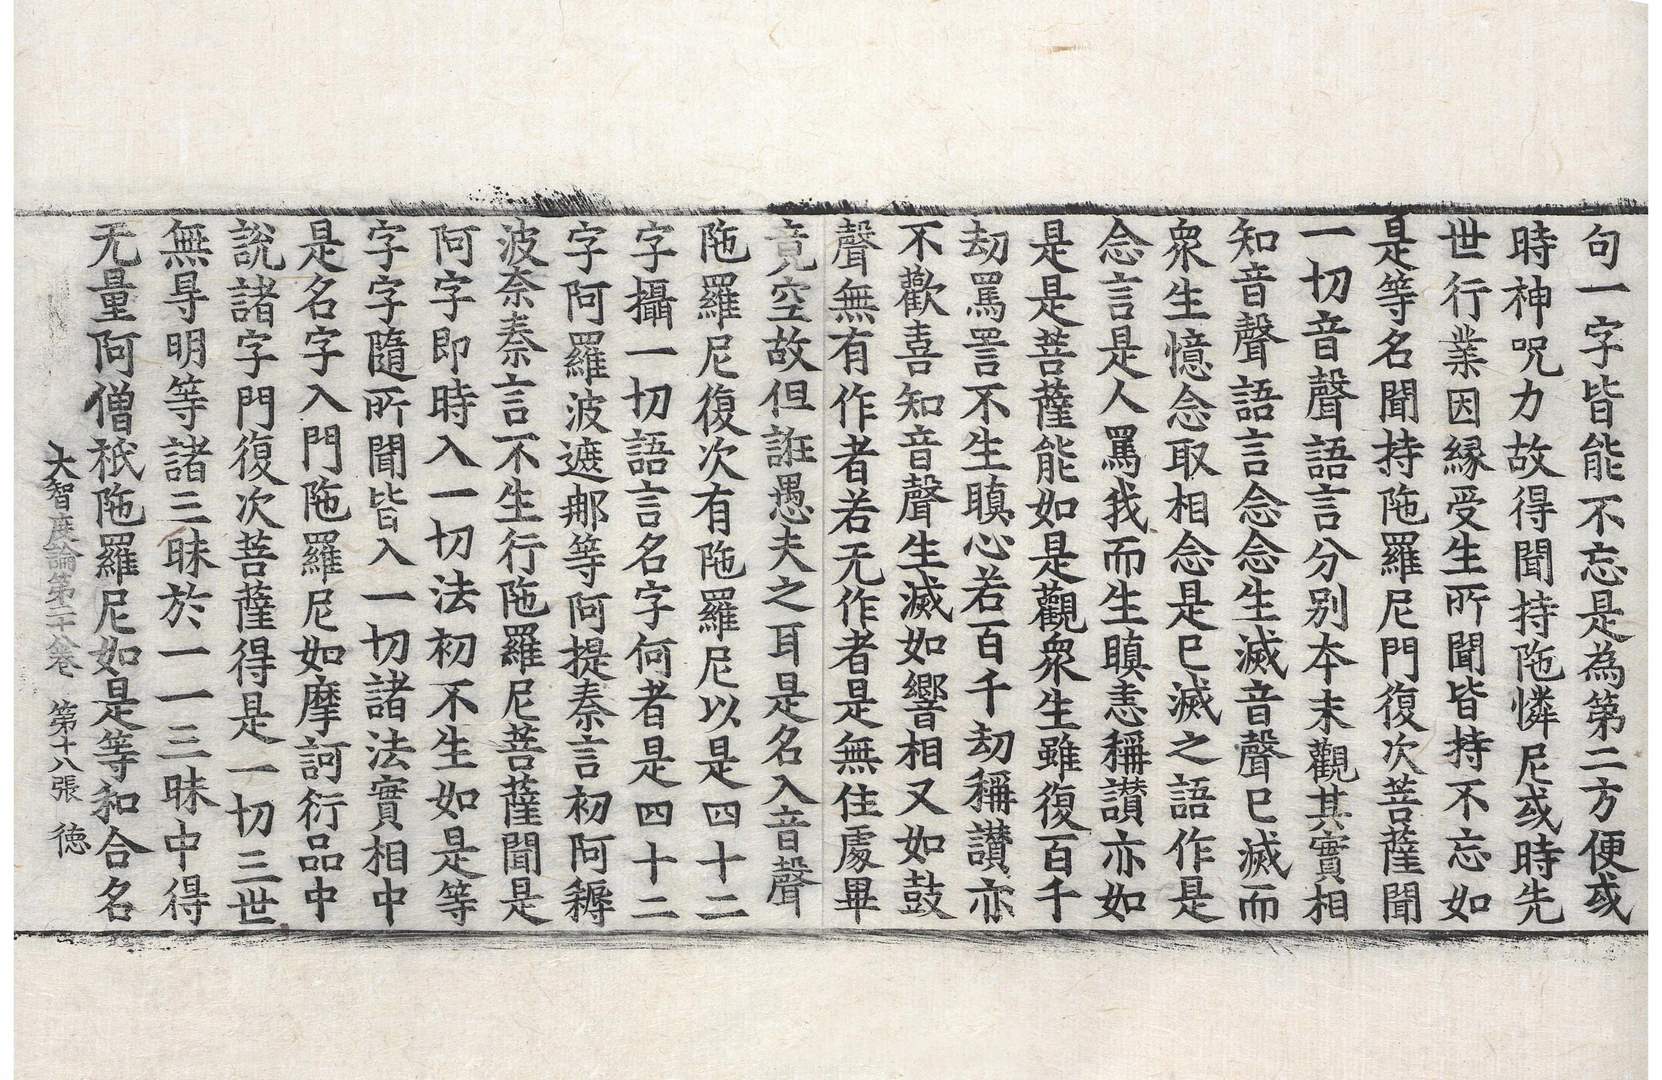 句一字皆能不忘是為第二方便或
時神呪力故得聞持陁憐尼或時先
世行業因緣受生所聞皆持不忘如
是等名聞持陁羅尼門復次菩薩聞
一切音聲語言分別本末觀其實相
知音聲語言念念生滅音聲已滅而
衆生憶念取相念是已滅之語作是
念言是人罵我而生瞋恚稱讚亦如
是是菩薩能如是觀衆生雖復百千
劫罵詈不生瞋心若百千劫稱讚亦
不歡喜知音聲生滅如響相又如鼓
聲無有作者若无作者是無住處畢
竟空故但誑愚夫之耳是名入音聲
陁羅尼復次有陁羅尼以是四十二
字攝一切語言名字何者是四十二
字阿羅波遮那等阿提秦言初阿耨
波奈秦言不生行陁羅尼菩薩聞是
阿字即時入一切法初不生如是等
字字隨所聞皆入一切諸法實相中
是名字入門陁羅尼如摩訶衍品中
說諸字門復次菩薩得是一切三世
無㝵明等諸三昧於一一三昧中得
无量阿僧祇陁羅尼如是等和合名
大智度論第二十八卷 第十八張 徳